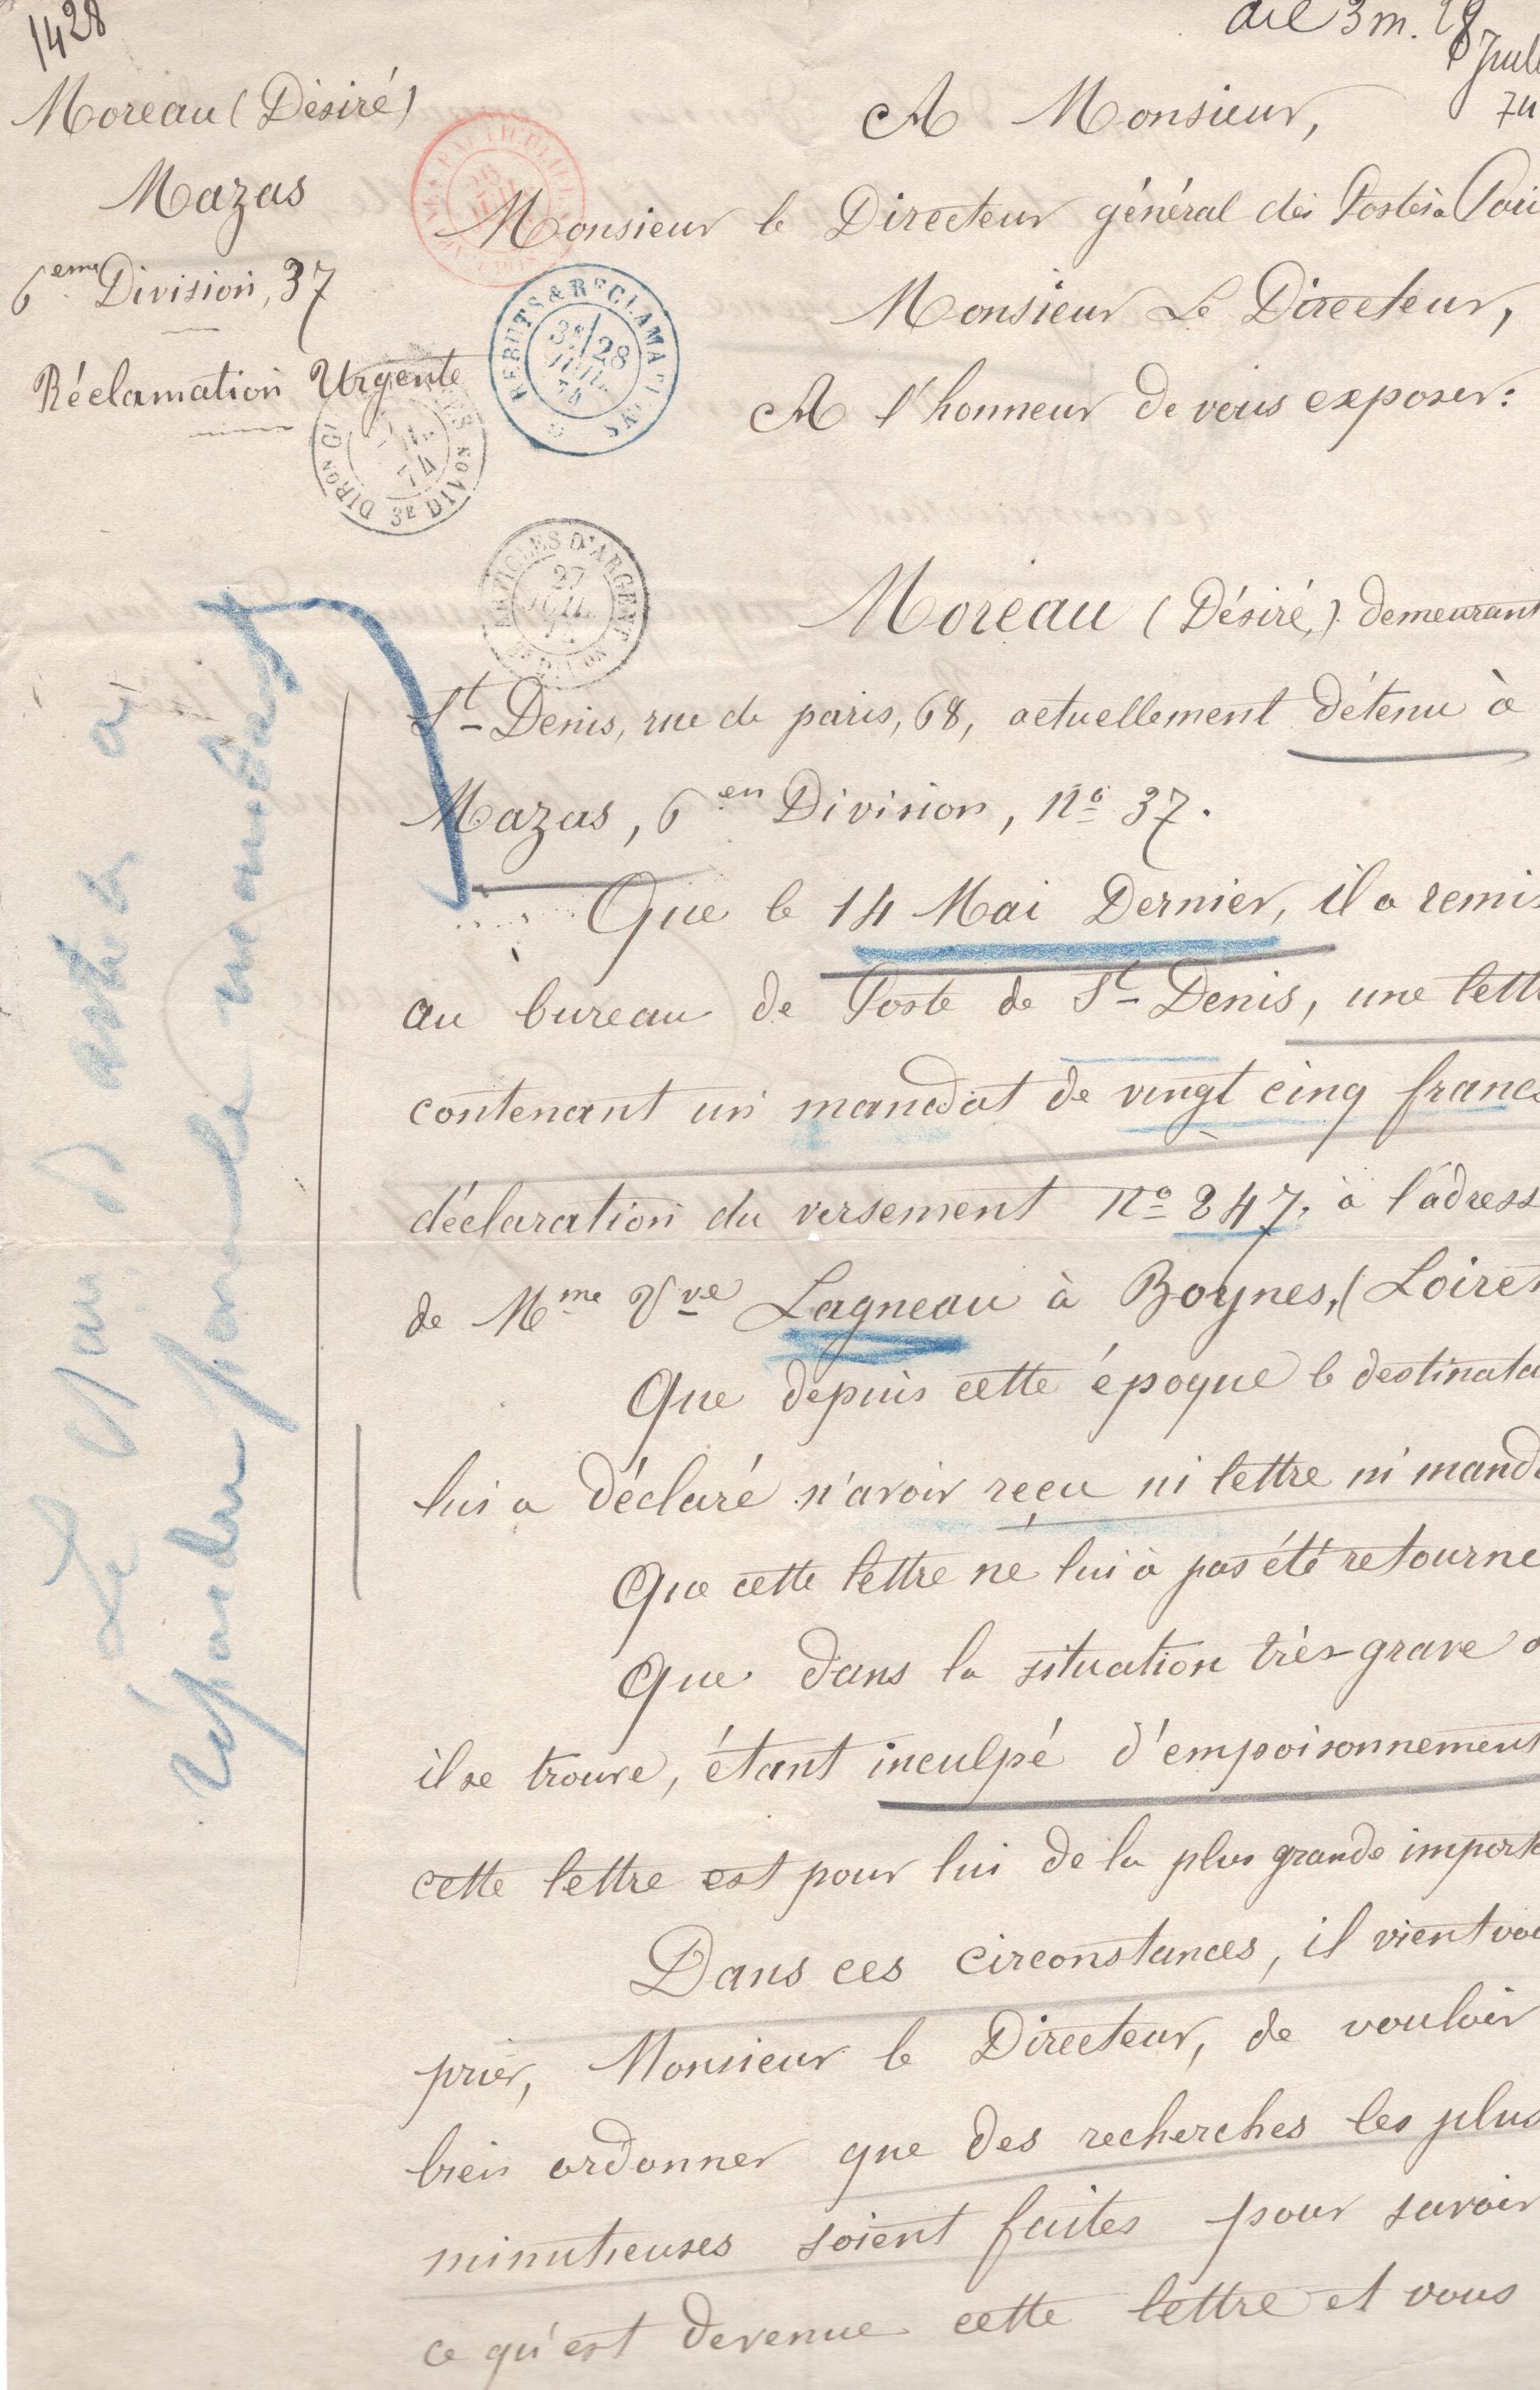 1428
Moreau (Désiré)
Mazas
6eme Division, 37
Réclamation Urgente
del 3 m. 28
Juil
74
A Monsieur,
Monsieur le Directeur général des Postes à Pari
Monsieur Le Directeur,
A l'honneur de vous exposer:
REBUTS & RECLAMATIONS
3e/28
JUIL
74
DIRON GLE
3E DIVON
ARTICLES D'ARGENT
27
JUIL
74
DIVON
Moreau (Désiré,) demeurant
St-Denis, rue de paris, 68, actuellement détenu à
Mazas, 6en Division, No 37.
Que le 14 Mai Dernier, il a remis
au bureau de Poste de St-Denis, une lett
contenant un mandat de vingt cinq francs
déclaration du versement No 247, à l'adress
de Mme Vve Lagneau à Boynes, (Loiret
Que depuis cette époque le destinata
lui a déclaré n'avoir reçu ni lettre ni manda
Que cette lettre ne lui à pas été retourne
Que dans la situation très-grave o
il se trouve, étant inculpé d'empoisonnement
cette lettre est pour lui de la plus grande importa
Dans ces circonstances, il vient vou
prier, Monsieur le Directeur, de vouloir
bien ordonner que des recherches les plus
minutieuses soient faites pour savoir
ce qu'est devenue cette lettre et vous
répondu pour le mandat